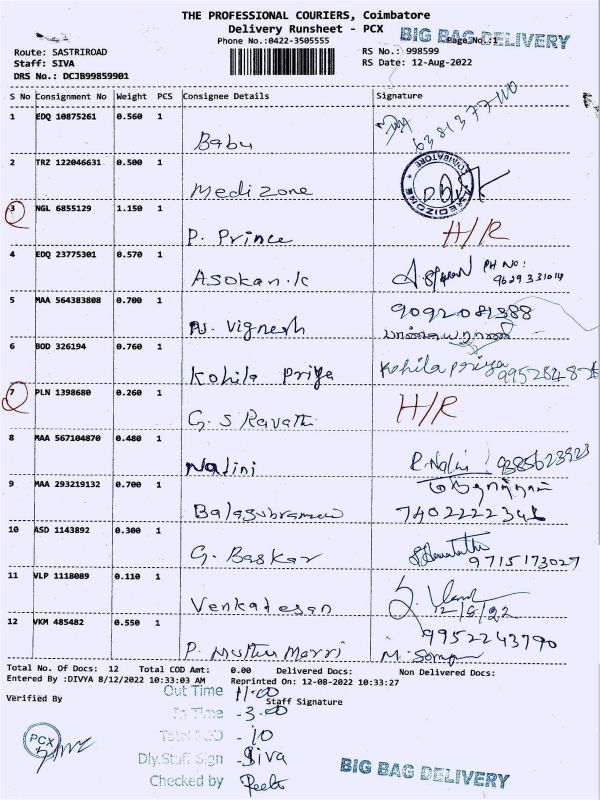 THE PROFESSIONAL COURIERS, Coimbatore
Delivery Runsheet - PCX
Phone No.:0422-3505555
BIG BAG DELIVERY
Page No.:1
Route: SASTRIROAD
Staff: SIVA
DRS No.: DCJB99859901
RS No.: 998599
RS Date: 12-Aug-2022
S No Consignment No Weight PCS Consignee Details Signature
1 EDQ 10875261 0.560 1 Babu
2 TRZ 122046631 0.500 1 Medizone
COIMBATORE * MEDIZONE *
3 NGL 6855129 1.150 1 P. Prince H/R
4 EDQ 23775301 0.570 1 Asokan.K PH NO:
5 MAA 564383808 0.700 1 N. Vignesh 9092081388
6 BOD 326194 0.760 1 Kohila Priya Kohila Priya
7 PLN 1398680 0.260 1 G. S Ravathi H/R
8 MAA 567104870 0.480 1 Nalini R. Nalini 9385623923
9 MAA 293219132 0.700 1
10 ASD 1143892 0.300 1 G. Baskar 9715173027
11 VLP 1118089 0.110 1 Venkatesan 12/8/22
12 VKM 485482 0.550 1 P. 9952243790
Total No. Of Docs: 12 Total COD Amt: 0.00 Delivered Docs: Non Delivered Docs:
Entered By :DIVYA 8/12/2022 10:33:03 AM Reprinted On: 12-08-2022 10:33:27
Verified By
Staff Signature
Out Time 11-00
In Time - 3-00
Total - 10
Dly.Staff Sign - Siva
Checked by
PCX
BIG BAG DELIVERY